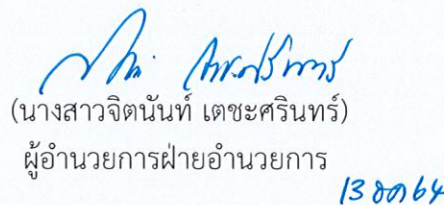 (นางสาวจิตนันท์ เตชะศรินทร์)
ผู้อำนวยการฝ่ายอำนวยการ
13 ตค 64